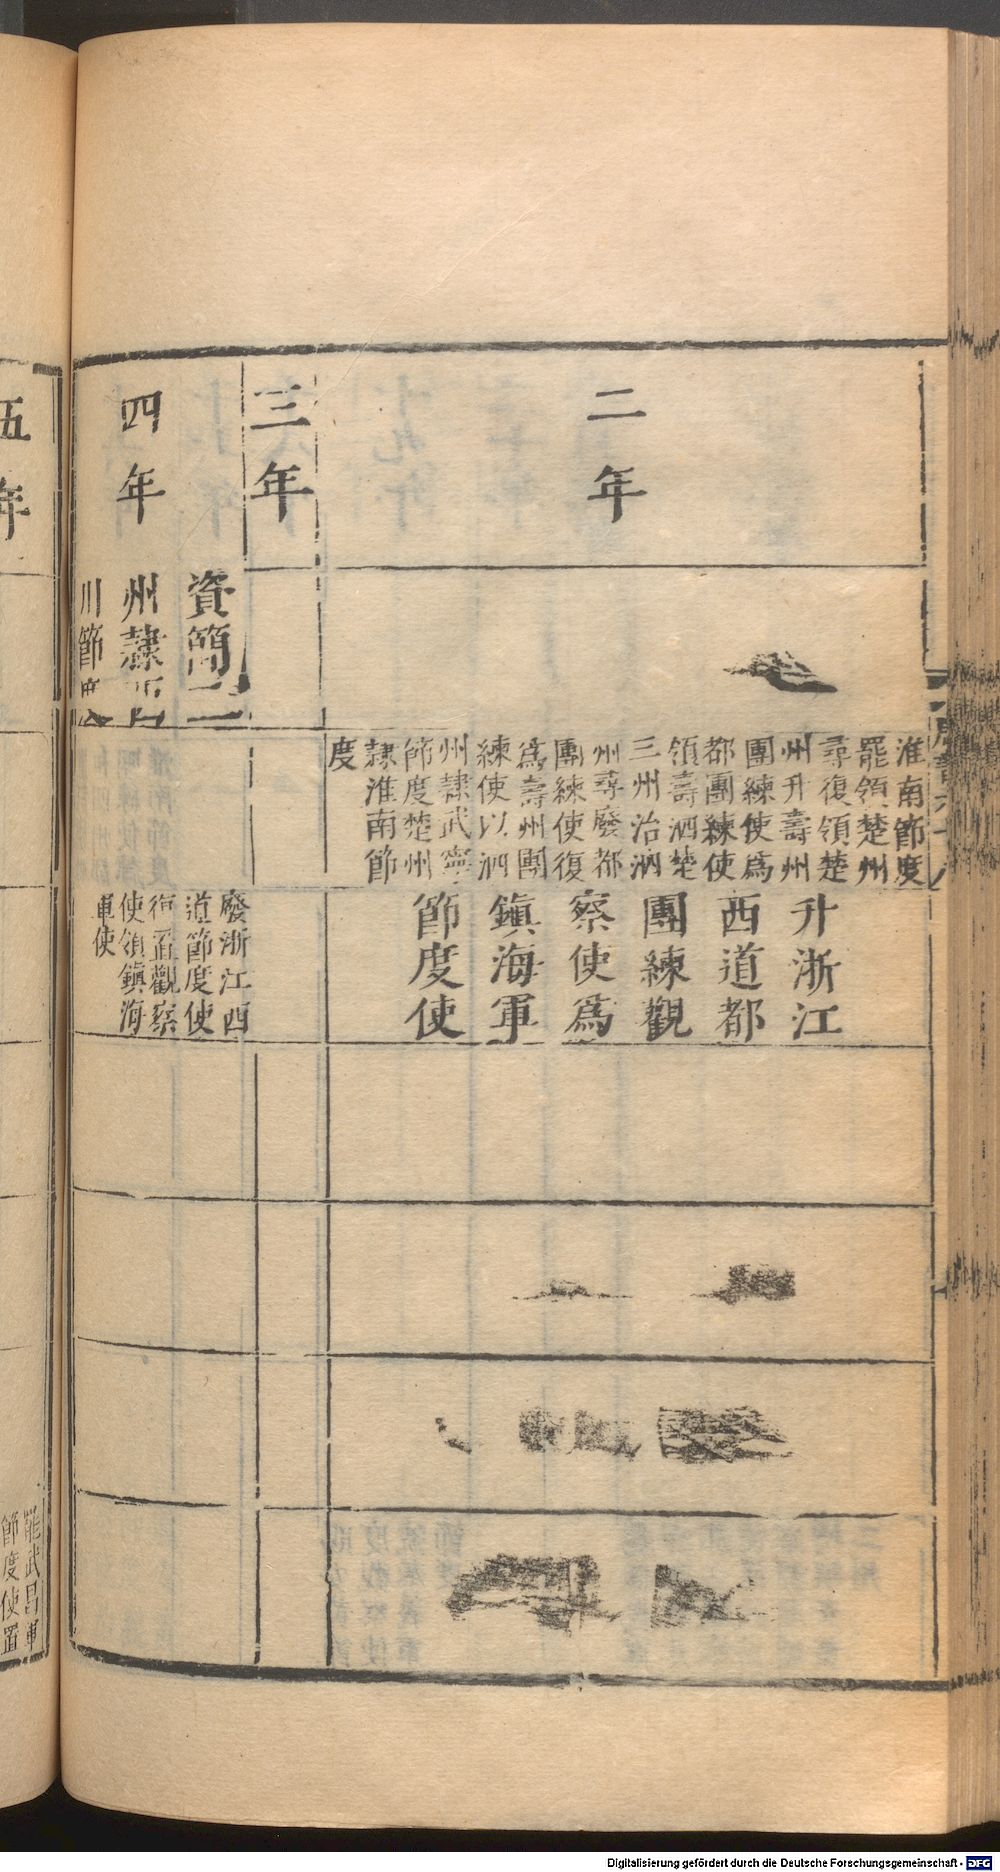 二年
淮南節度
罷領楚州
尋復領楚
州升壽州
團練使爲
都團練使
領壽泗楚
三州治泗
州尋廢都
團練使復
爲壽州團
練使以泗
州隷武寧
節度楚州
隷淮南節
度
升浙江
西道都
團練觀
察使爲
鎮海軍
節度使
三年
四年
資簡二
州隷西
川節度
廢浙江西
道節度使
復置觀察
使領鎮海
軍使
五年
罷武昌軍
節度使置
Digitalisierung gefördert durch die Deutsche Forschungsgemeinschaft - DFG